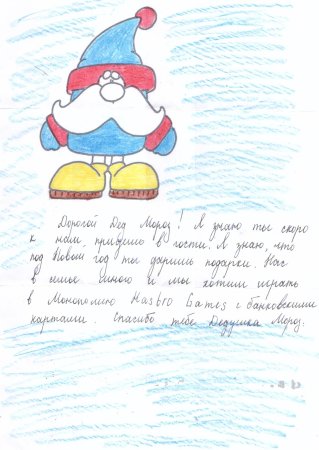 Дорогой Дед Мороз! Я знаю ты скоро
к нам, придёшь в гости. Я знаю, что
под Новый год ты даришь подарки. Нас
в семье много и мы хотим играть
в Монополию Hasbro Games с банковскими
картами. Спасибо тебе Дедушка Мороз.